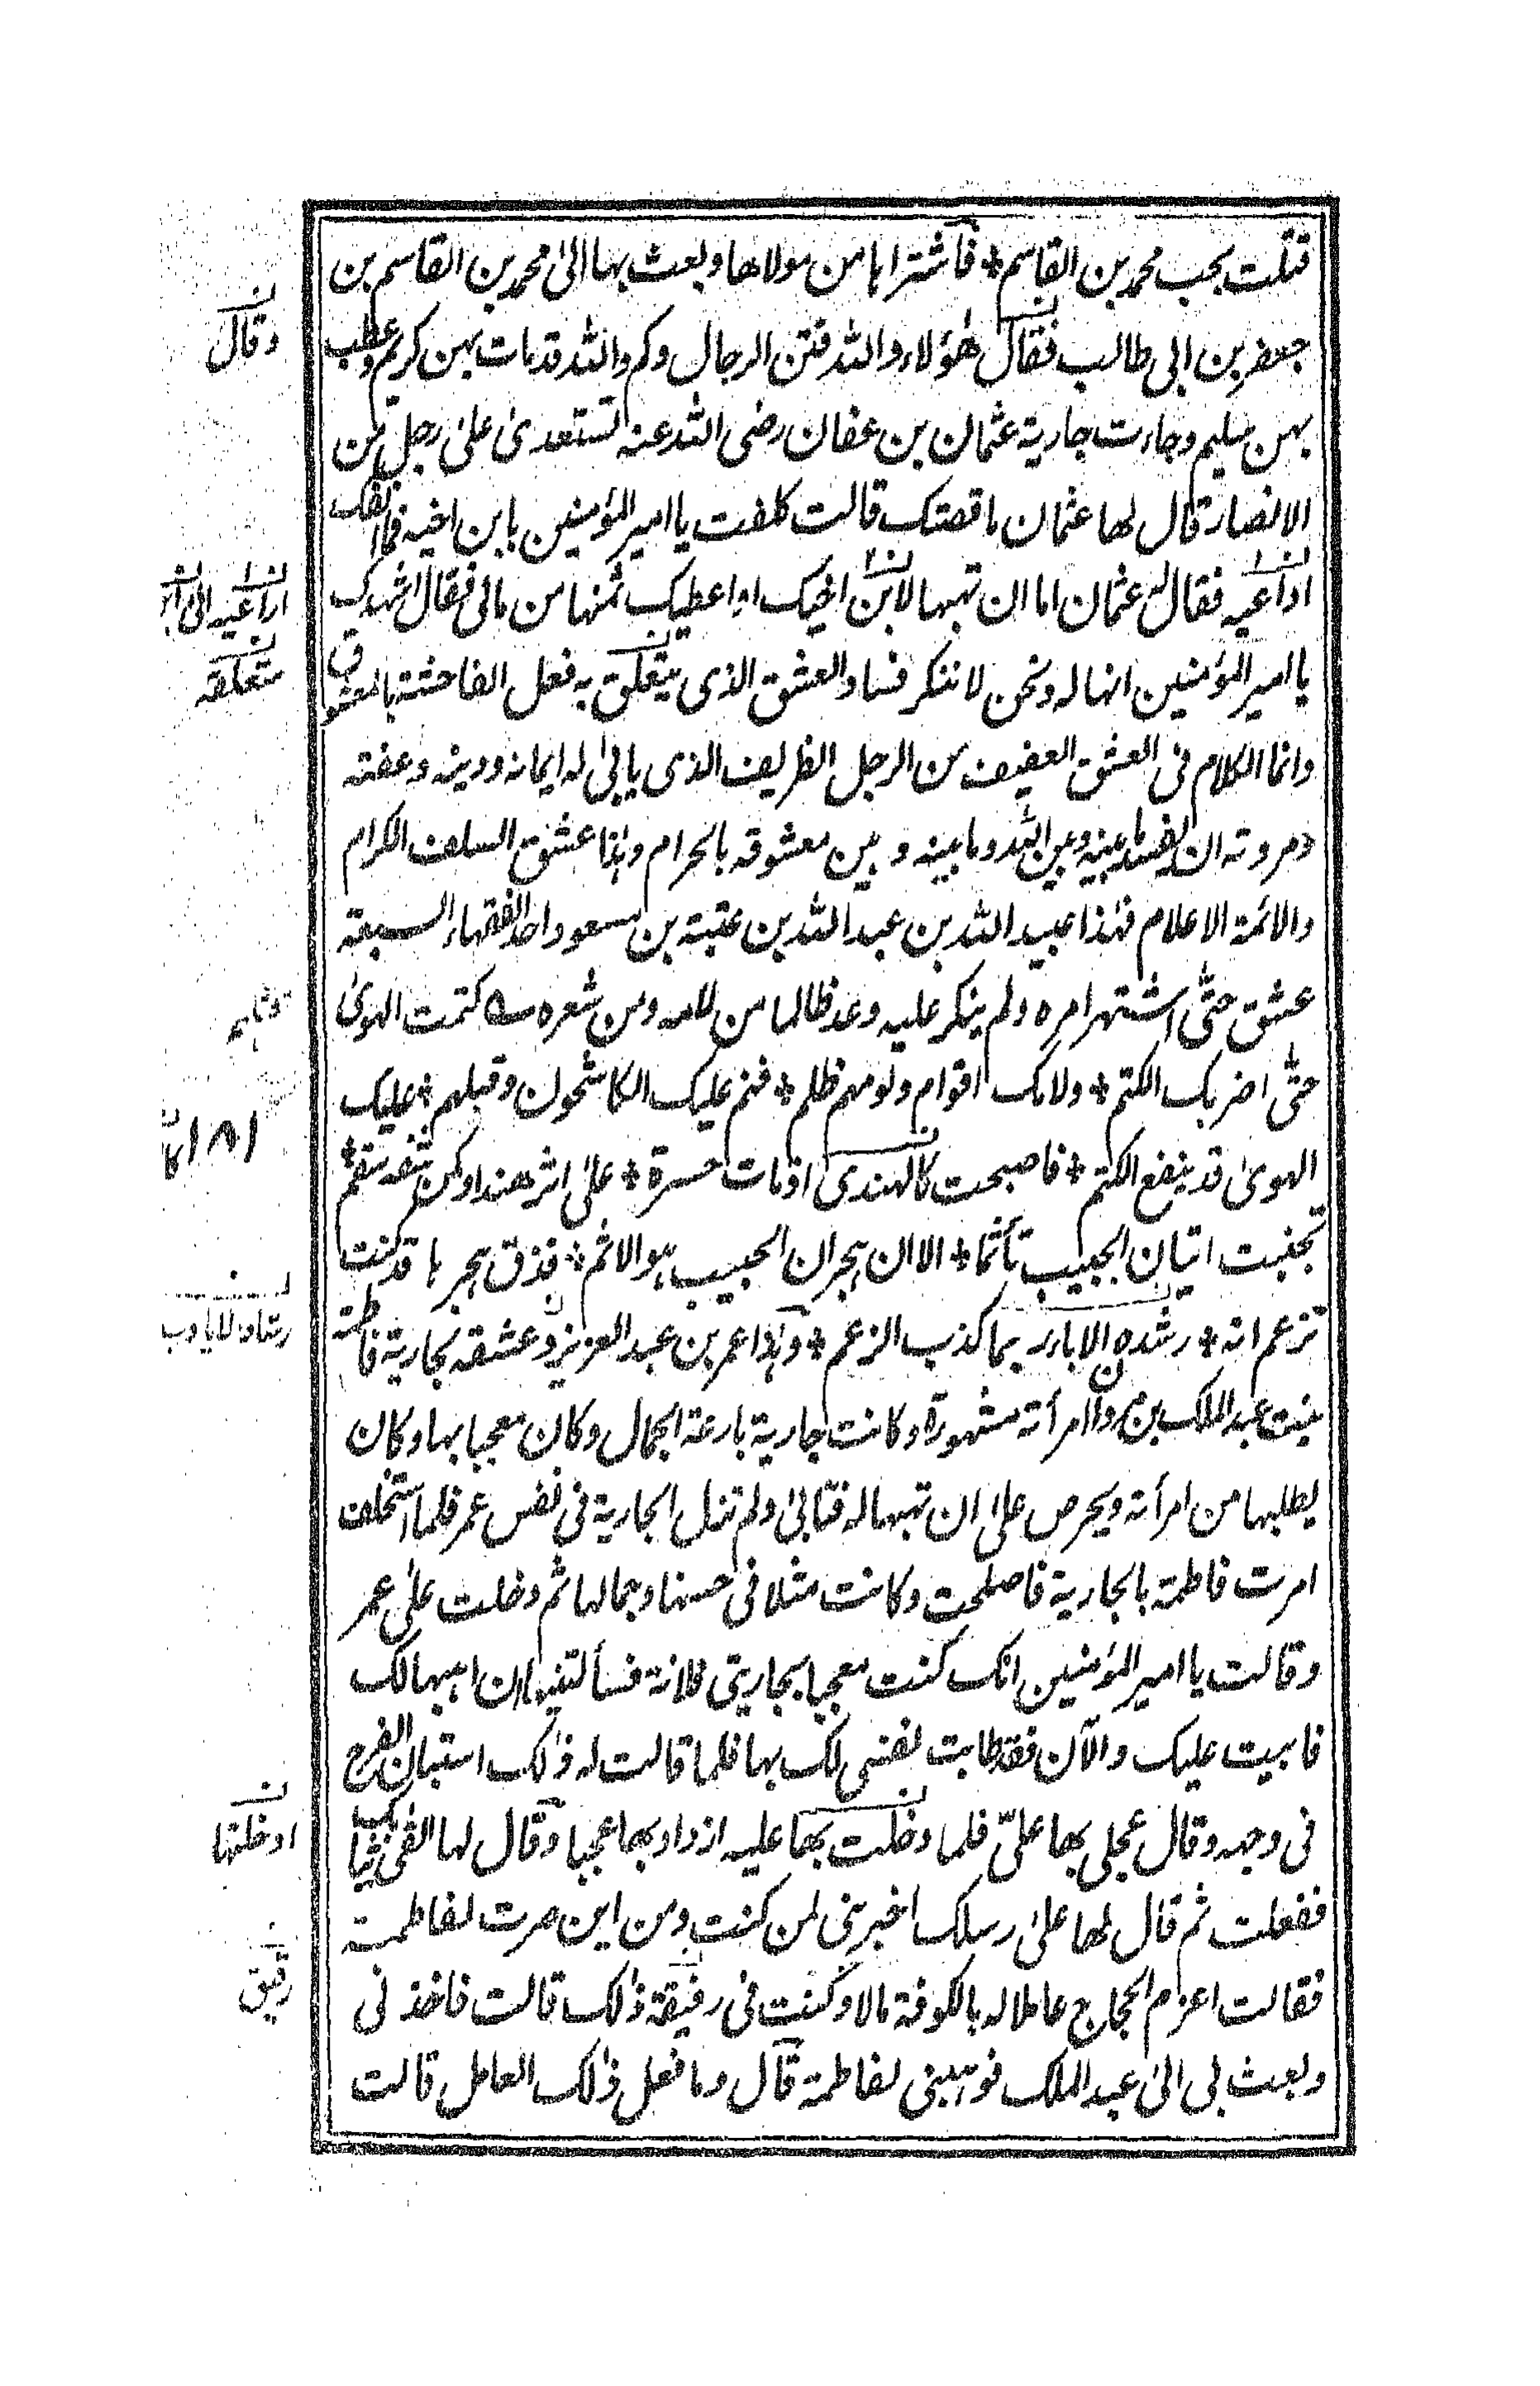 قتلت بحب محمد بن القاسم * فاشتراها من مولاها وبعث بها الى محمد بن القاسم بن
جعفر بن ابى طالب فقال هؤلاء والله فتن الرجال وكم والله قد مات بهن كريم وعطب
بهن سليم وجاءت جارية عثمان بن عفان رضى الله عنه تستعدى على رجل من
الانصار قال لها عثمان ما قصتك قالت كلفت يا امير المؤمنين بابن اخيه فما انفك
اراعيه فقال له عثمان اما ان تهبها لابن اخيك او اعطيك ثمنها من مالى فقال اشهدك
يا امير المؤمنين انها له ونحن لا ننكر فساد العشق الذى يتعلق به فعل الفاحشة بالمعشوق
وانما الكلام فى العشق العفيف من الرجل الظريف الذى يابى له ايمانه ودينه وعفته
ومروته ان يفسد ما بينه وبين الله وما بينه وبين معشوقه بالحرام وهذا عشق السلف الكرام
والائمة الاعلام فهذا عبيد الله بن عبد الله بن عتبة بن مسعود احد الفقهاء السبعة
عشق حتى اشتهر امره ولم ينكر عليه وعد ظالما من لامه ومن شعره كتمت الهوى
حتى اضر بك الكتم * ولامك اقوام ولومهم ظلم * فنم عليك الكاشحون وقبلهم * عليك
الهوى قد ينفع الكتم * فاصبحت كالهندى اذ مات حسرة * على اثر هند او كمن شفه سقم *
تجنبت اتيان الحبيب تأثما * الا ان هجران الحبيب هو الاثم * فذق هجرها قد كنت
تزعم انه * رشده الاباء ربما كذب الزعم * وهذا عمر بن عبد العزيز وعشقه بجارية فاطمة
بنت عبد الملك بن مروان امرأته مشهورة وكانت جارية بارعة الجمال وكان معجبا بها وكان
يطلبها من امرأته ويحرص على ان تهبها له فتابى ولم تنل الجارية فى نفس عمر فلما استخلف
امرت فاطمة بالجارية فاصلحت وكانت مثلا فى حسنها وجمالها ثم دخلت على عمر
وقالت يا امير المؤمنين انك كنت معجبا بجاريتى فلانة فسألتنيها ان اهبها لك
فابيت عليك والآن فقد طابت نفسى لك بها فلما قالت له ذلك استبان الفرح
فى وجهه وقال عجلى بها علىّ فلما دخلت بها عليه ازداد بها عجبا وقال لها القى ثيابك
ففعلت ثم قال لها على رسلك اخبرينى لمن كنت ومن اين صرت لفاطمة
فقالت اعزم الحجاج عاملا له بالكوفة مالا وكنت فى رفيقة ذلك قالت فاخذنى
وبعث بى الى عبد الملك فوهبنى لفاطمة قال وما فعل ذلك العامل قالت
وقال
اراعيه
متعلقه
ادخلتها
رقيق